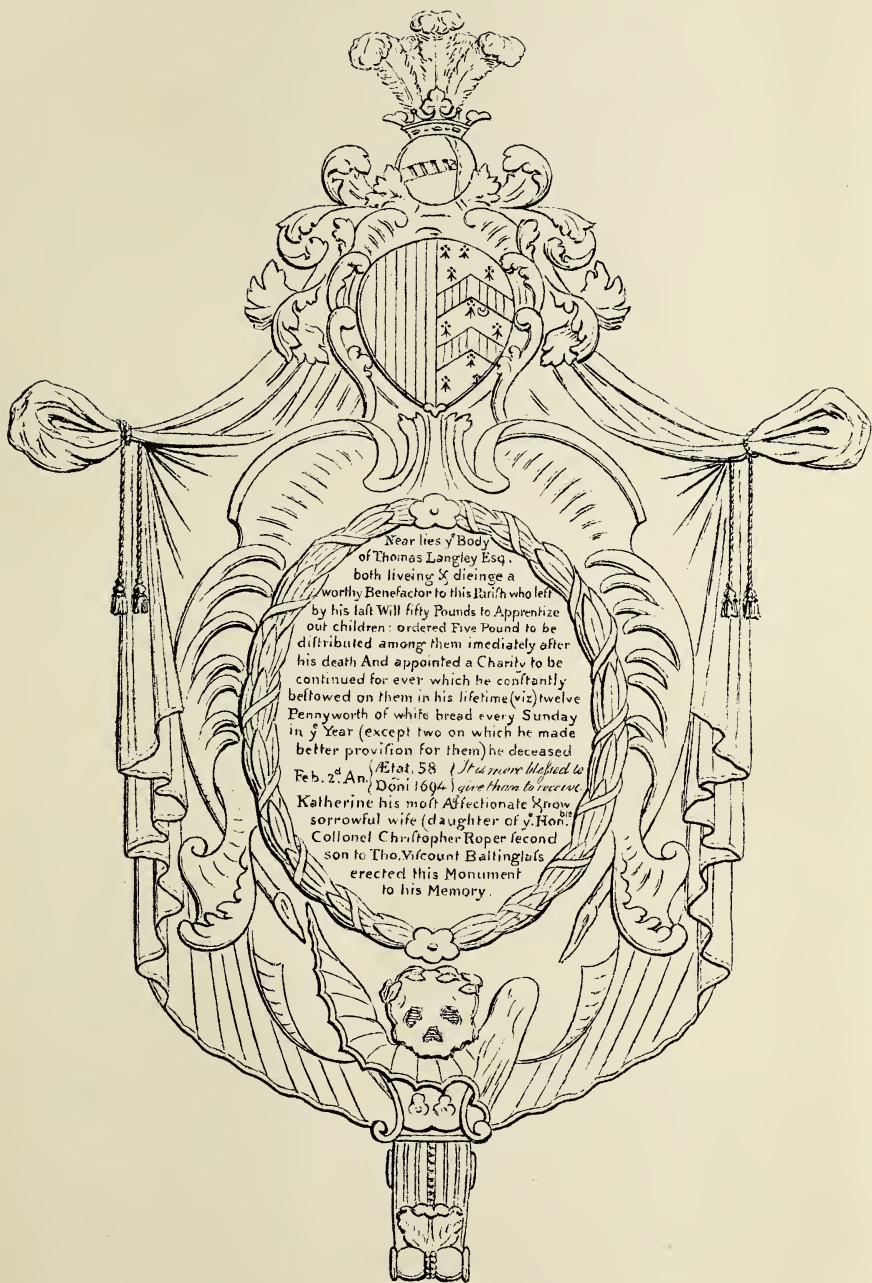 Near lies yᵉ Body
of Thomas Langley Esq.
both liveing & dieinge a
worthy Benefactor to this Pariſh who left
by his laſt Will fifty Pounds to Apprentize
out children: ordered Five Pound to be
diſtributed among them imediately after
his death And appointed a Charity to be
continued for ever which he conſtantly
beſtowed on them in his lifetime (viz) twelve
Pennyworth of white bread every Sunday
in yᵉ Year (except two on which he made
better proviſion for them) he deceased
Feb. 2ᵈ. An. { Ætat. 58 { It is more bleſſed to
{ Dōni 1694 { give than to receive.
Katherine his moſt Affectionate & now
sorrowful wife (daughter of yᵉ. Honᵇˡᵉ.
Collonel Chriſtopher Roper ſecond
son to Tho. Viſcount Baltinglaſs
erected this Monument
to his Memory.